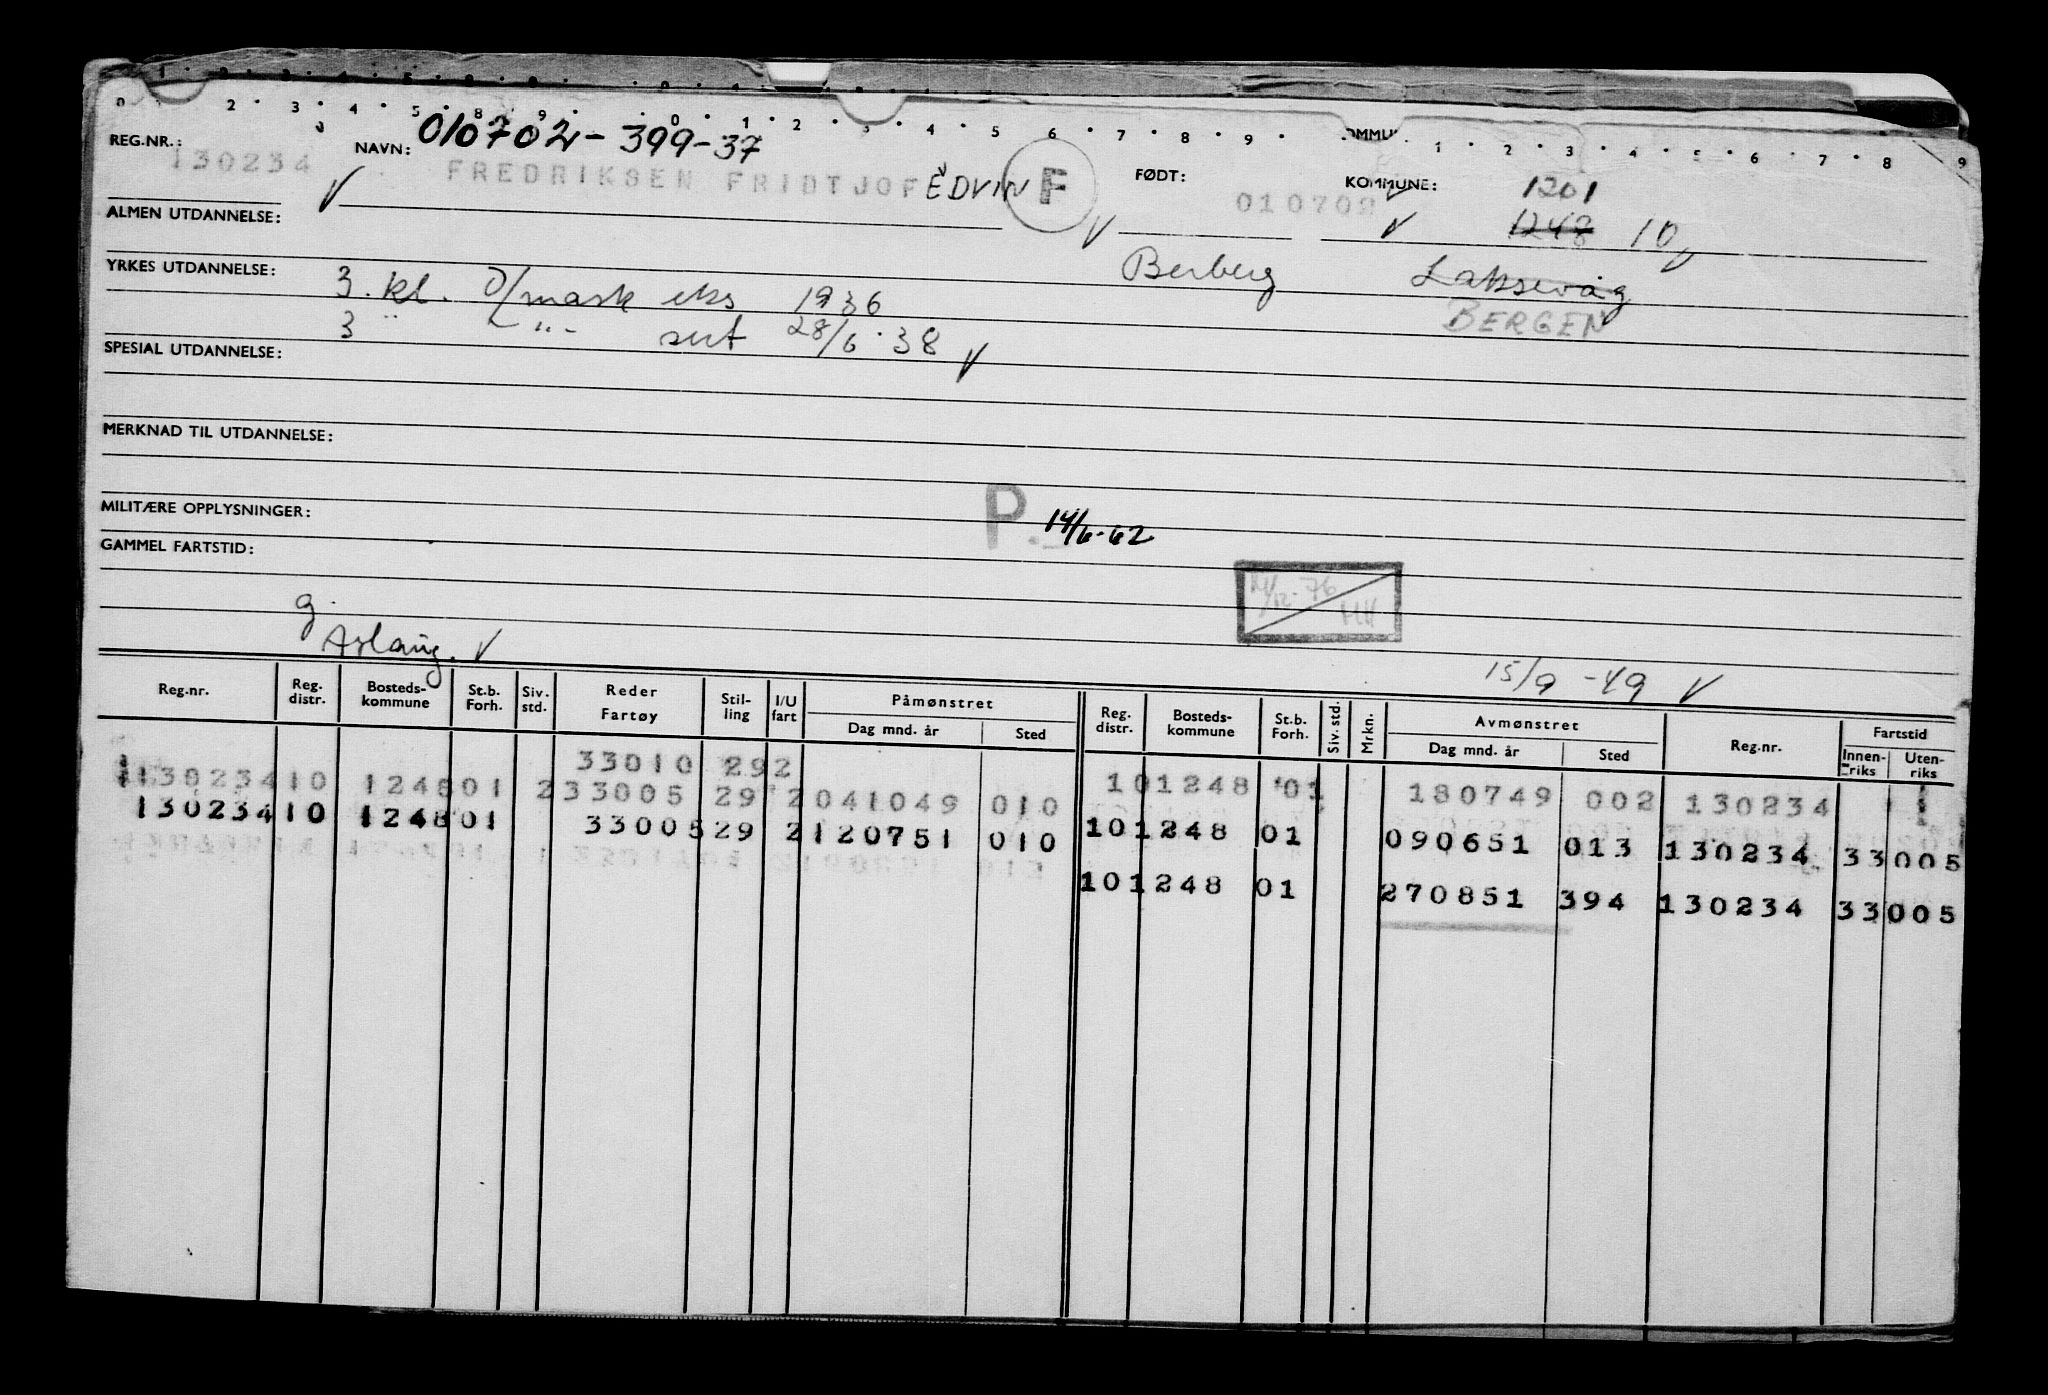 REG.NR.: 130234 NAVN: 010702-399-37
FREDRIKSEN FRIDTJOF EDVIN F FØDT: 010702 KOMMUNE: 1201
1248 10
ALMEN UTDANNELSE:
Berberg Laksevåg
YRKES UTDANNELSE: 3. kl. D/mask eks 1936
BERGEN
3 " - " - sert 28/6.38
SPESIAL UTDANNELSE:
MERKNAD TIL UTDANNELSE:
MILITÆRE OPPLYSNINGER: P. 14/6-62
GAMMEL FARTSTID:
14/12-76
HH
g. Aslaug.
15/9-49
Reg.nr. Reg. distr. Bosteds-kommune St.b. Forh. Siv. std. Reder Fartøy Stil-ling I/U fart Påmønstret Dag mnd. år Sted Reg. distr. Bosteds-kommune St.b. Forh. Siv. std. Mrkn. Avmønstret Dag mnd. år Sted Reg.nr. Fartstid Innen-riks Uten-riks
33010 292
130234 10 1248 01 2 33005 29 2 041049 010 10 1248 01 180749 002 130234
130234 10 1248 01 33005 29 2 120751 010 10 1248 01 090651 013 130234 33 005
10 1248 01 270851 394 130234 33 005